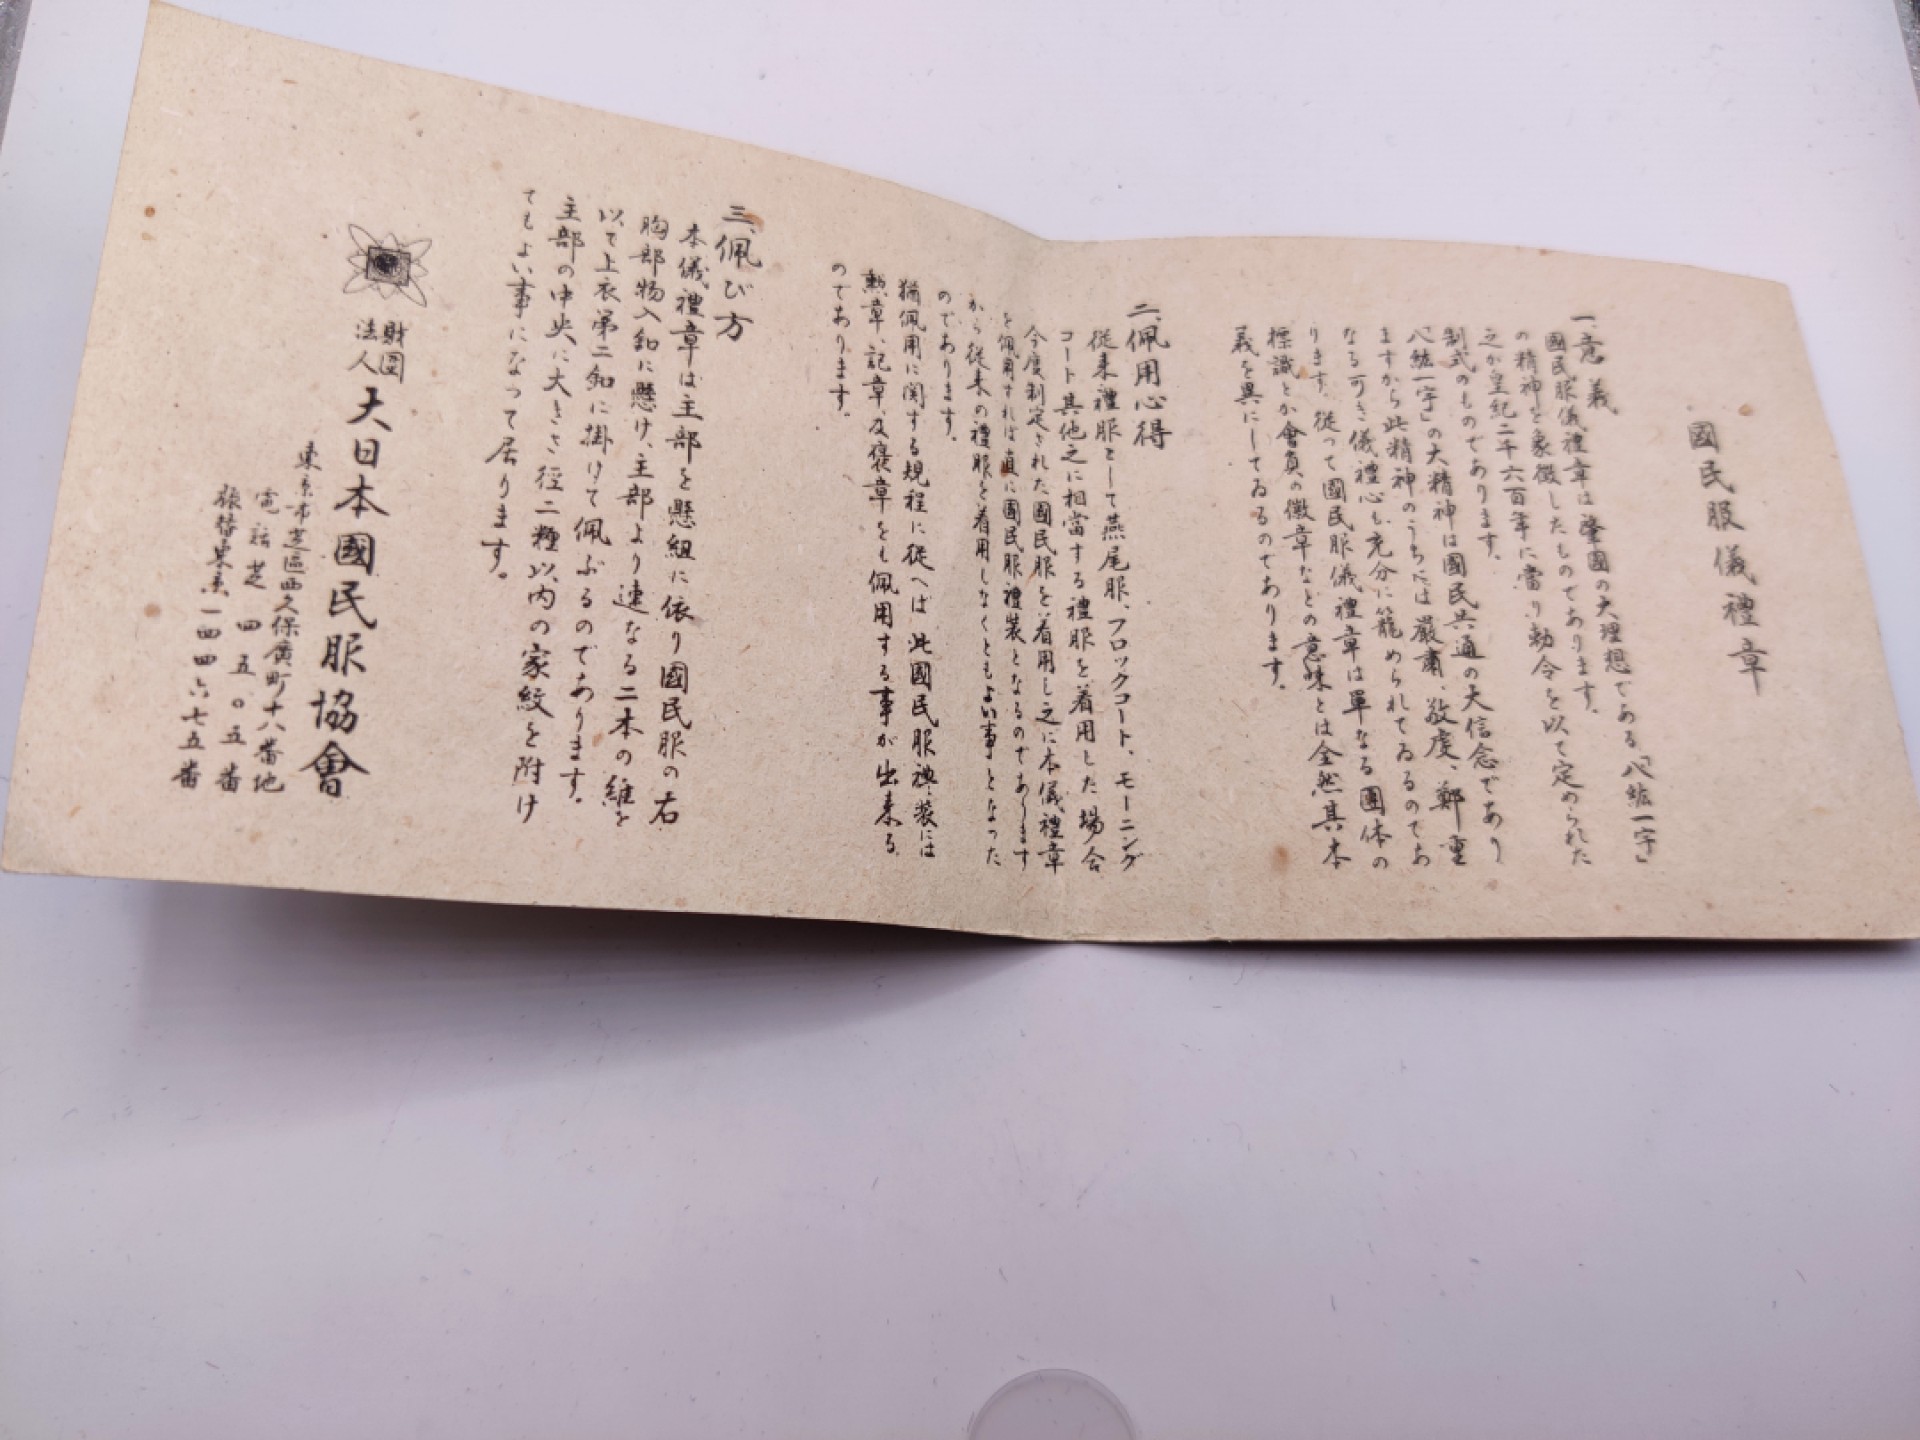 國民服儀禮章
一、意義
國民服儀禮章は肇國の大理想である「八紘一宇」
の精神を象徴したものであります。
之が皇紀二千六百年に當り勅令を以て定められた
制式のものであります。
「八紘一宇」の大精神は國民共通の大信念であり
ますから此精神のうちには嚴肅、敬虔、鄭重
なる可き儀禮心も充分に籠められてゐるのであ
ります。従って國民服儀禮章は單なる團体の
標識とか會員の徽章などの意味とは全然其本
義を異にしてゐるのであります。
二、佩用心得
従来禮服として燕尾服、フロックコート、モーニング
コート其他之に相當する禮服を着用した場合
今度制定された國民服を着用し之に本儀禮章
を佩用すれば直に國民服禮装となるのであります
から従来の禮服を着用しなくともよい事となった
のであります。
猶佩用に関する規程に従へば此國民服禮装には
勲章、記章、及褒章をも佩用する事が出来る
のであります。
三、佩び方
本儀禮章は主部を懸紐に依り國民服の右
胸部物入釦に懸け、主部より連なる二本の維を
以て上衣第二釦に掛けて佩ぶるのであります。
主部の中央に大きさ径二糎以内の家紋を附け
てもよい事になって居ります。
財團法人 大日本國民服協會
東京市芝區西久保廣町十八番地
電話芝四五〇五番
振替東京一四四六七五番